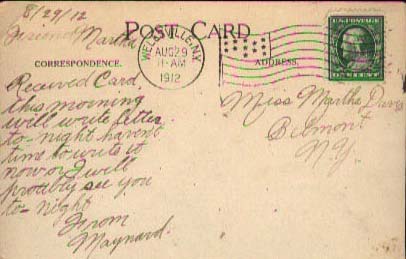 8/29/12
Friend Martha
POST CARD
CORRESPONDENCE.
ADDRESS.
WELLSVILLE, N.Y.
AUG 29
11-AM
1912
U.S. POSTAGE
Received Card
this morning
will write letter
to-night havent
time to write it
now or I will
probly see you
to-night
From
Maynard.
Miss Martha Davis
Belmont
N.Y.